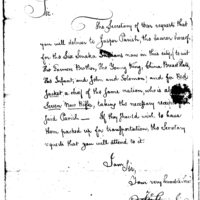 Sir.
The Secretary of War requests that
you will deliver to Jasper Parish, the bearer hereof,
for the Six Indians now in this city, to wit
The Farmer's Brother, The Young King,
The Infant, and John and Solomon; and for Red
Jacket a chief of the same nation, who is also
Seven New Rifles, taking the necessary receipt
said Parish — If they should wish to have
them packed up for transportation, the Secretary
requests that you will attend to it.
I am,
Sir,
I am very